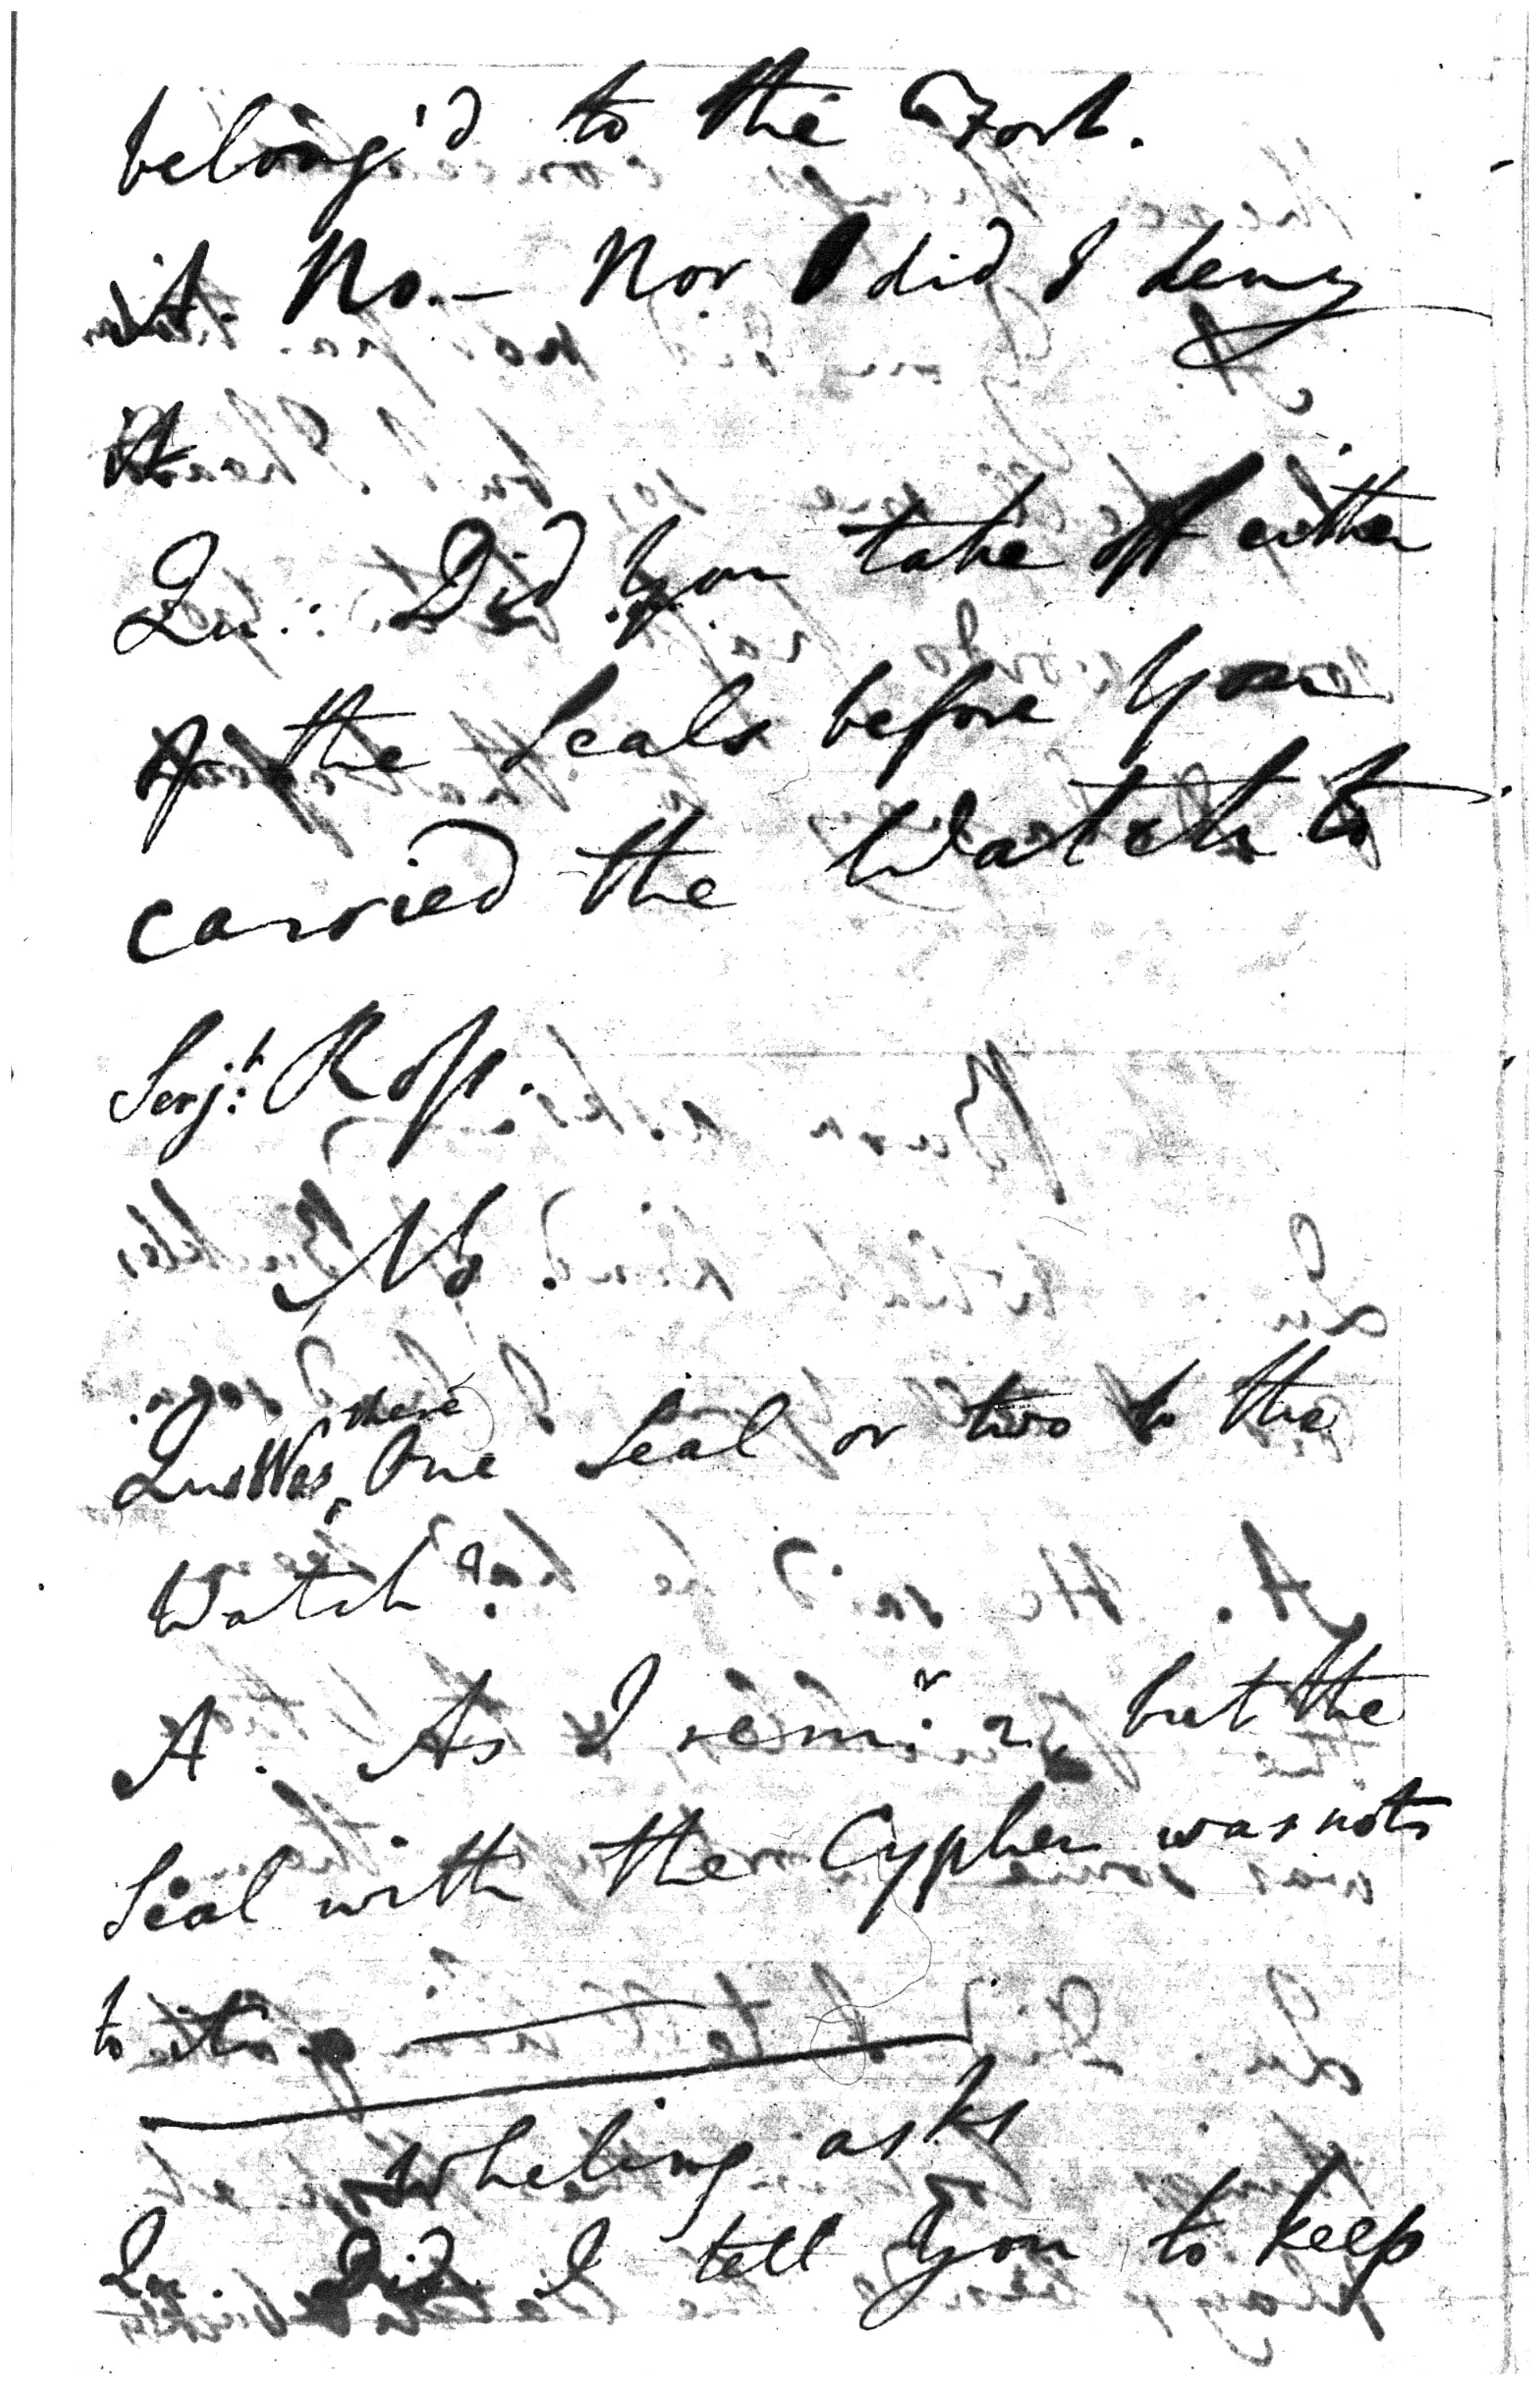 belong'd to the Fort.
A. No. — Nor did I deny
it
Qu: Did You take off either
of the Seals before You
carried the Watch to
Serj:t Ross.
No.
there
Qu: Was ^ One Seal or two to the
Watch?
A. As I rem:r 2, but the
Seal with the Cypher was not
to it
Wheling asks
Qu. Did I tell You to keep